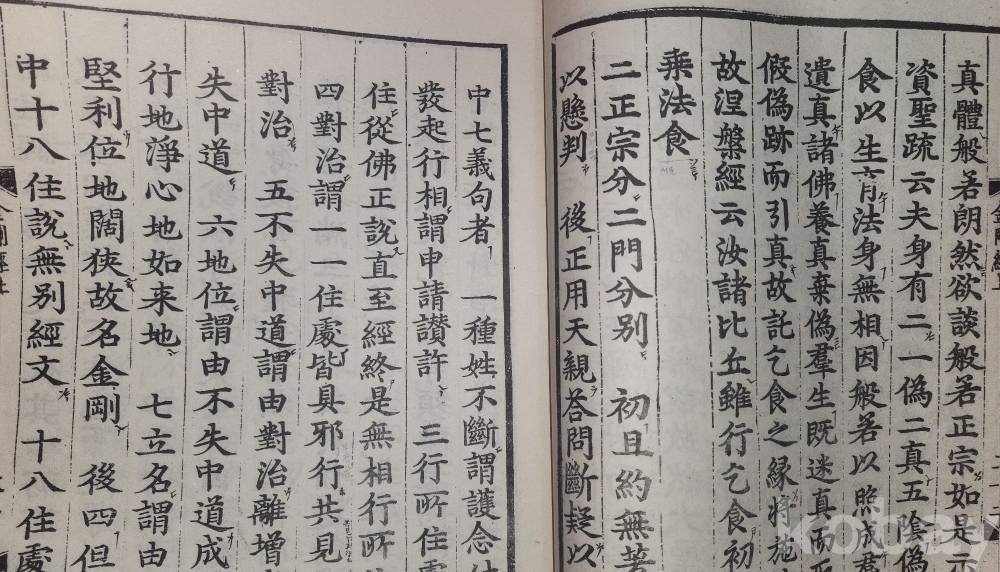 真體般若朗然欲談般若正宗如是示
資聖疏云夫身有二一偽二真五陰偽
食以生育法身無相因般若以照成君
遺真諸佛養真棄偽羣生既迷真而
假偽跡而引真故託乞食之緣將施
故涅槃經云汝諸比丘雖行乞食初
乘法食
二正宗分二門分別 初且約無著
以懸判 後正用天親荅問斷疑以
中七義句者 一種姓不斷謂護念付
發起行相謂申請讚許 三行所住處
住從佛正說直至經終是無相行所
四對治謂一一住處皆具邪行共見
對治 五不失中道謂由對治離增
失中道 六地位謂由不失中道成
行地淨心地如來地 七立名謂由
堅利位地闊狹故名金剛 後四但
中十八住說無別經文 十八住處
kobay